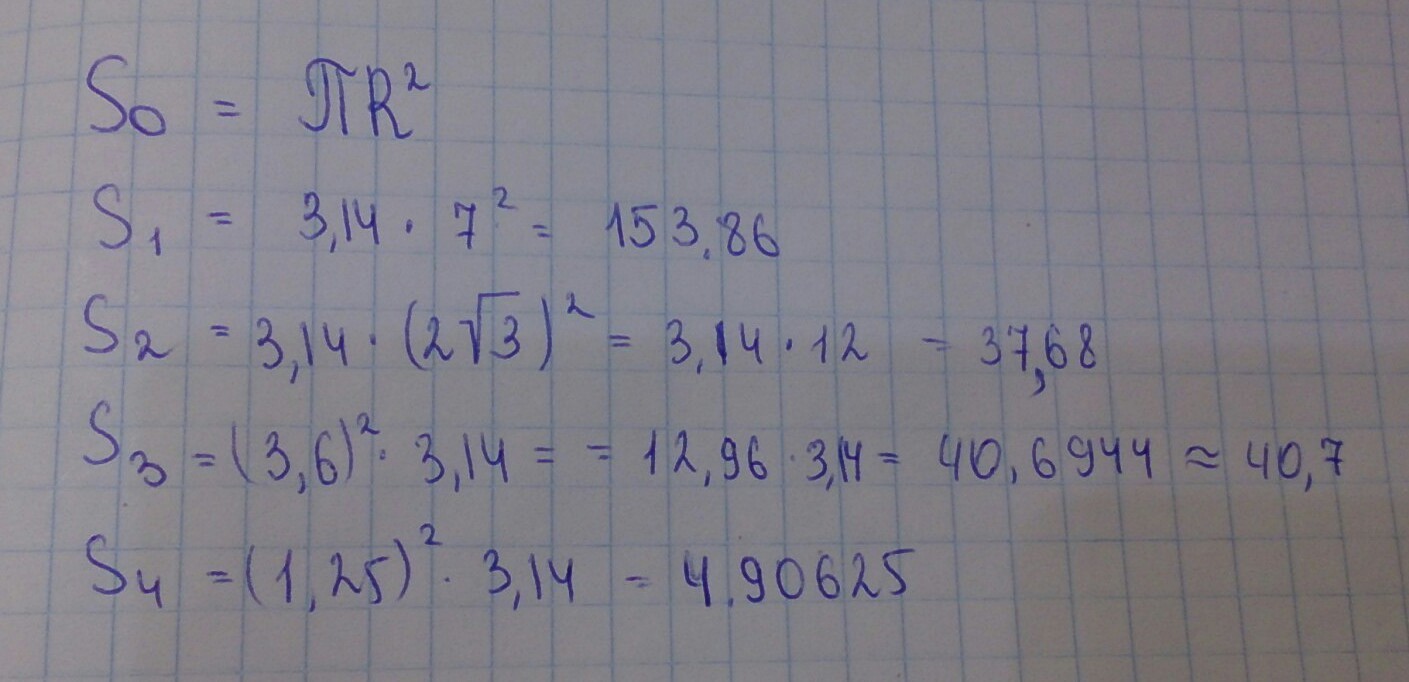 S₀ = πR²
S₁ = 3,14 · 7² = 153,86
S₂ = 3,14 · (2√3)² = 3,14 · 12 = 37,68
S₃ = (3,6)² · 3,14 = = 12,96 · 3,14 = 40,6944 ≈ 40,7
S₄ = (1,25)² · 3,14 = 4,90625